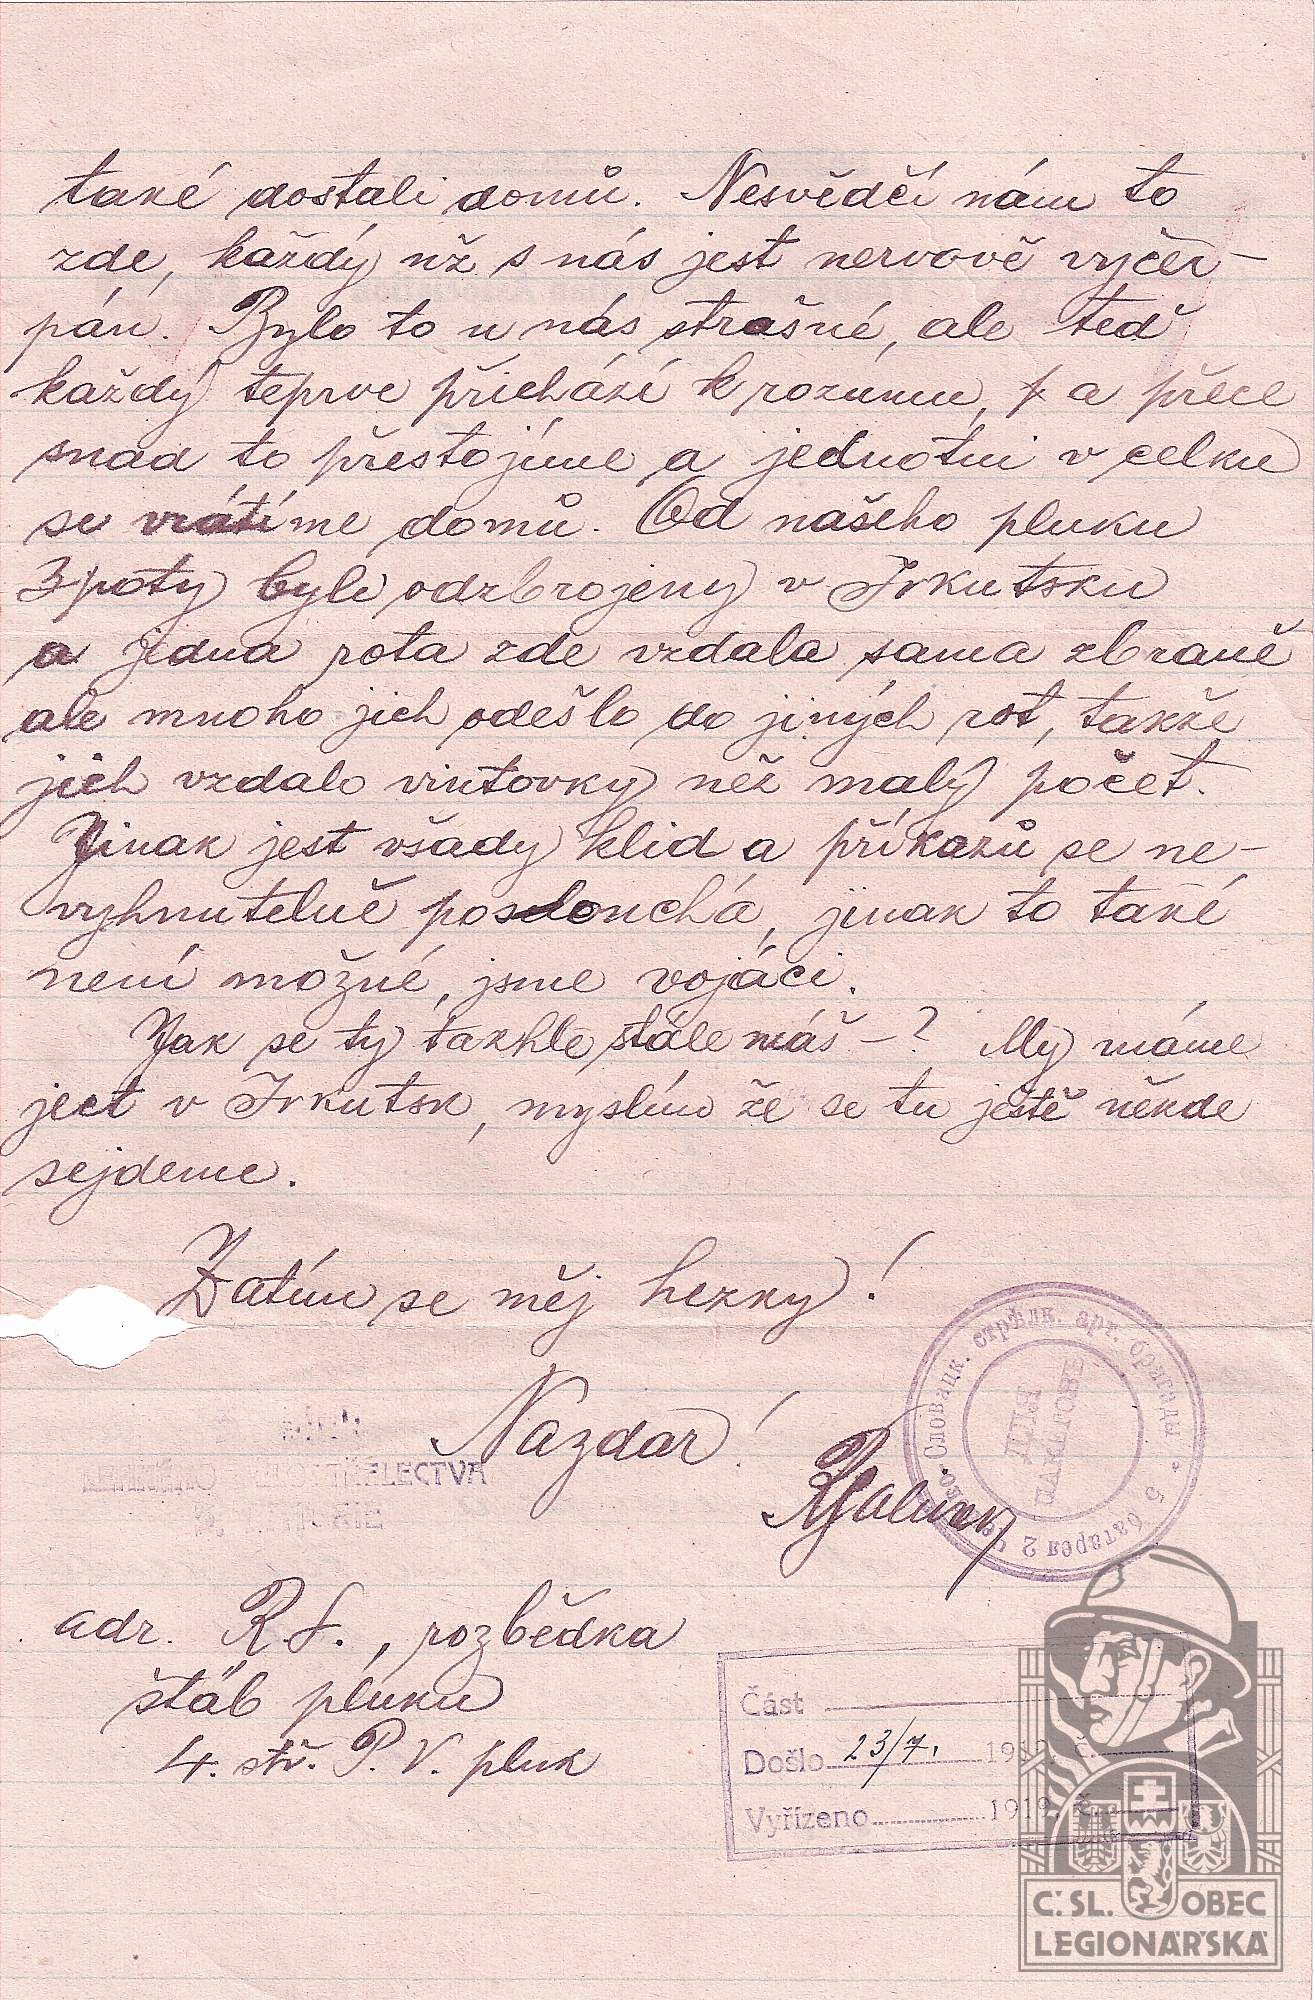 také dostali domů. Nesvědčí nám to
zde, každý už s nás jest nervově vyčer-
pán. Bylo to u nás strašné, ale teď
každý teprve přichází k rozumu, a přece
snad to přestojíme a jednotni v celku
se vrátíme domů. Od našeho pluku
3 roty byli odzbrojeny v Irkutsku
a jedna rota zde vzdala sama zbraně
ale mnoho jich odešlo do jiných rot, takže
jich vzdalo vintovky než malý počet.
Jinak jest všady klid a příkazů se ne-
vyhnutelně poslouchá, jinak to také
není možné, jsme vojáci.
Jak se ty takhle stále máš -? My máme
ject v Irkutsk, myslím že se tu ještě někde
sejdeme.
Zatím se měj hezky!
Nazdar!
адr. R.J., rozbědka
štáb pluku
4. stř. P. V. pluk
Словацк. стрѣлк. арт. бригады * 5 батарея 2
ДЛЯ ПАКЕТОВЪ
STŘELECTVA
Část
Došlo 23/7. 1919. č.
Vyřízeno 1919. č.
Č.SL. OBEC
LEGIONÁŘSKÁ